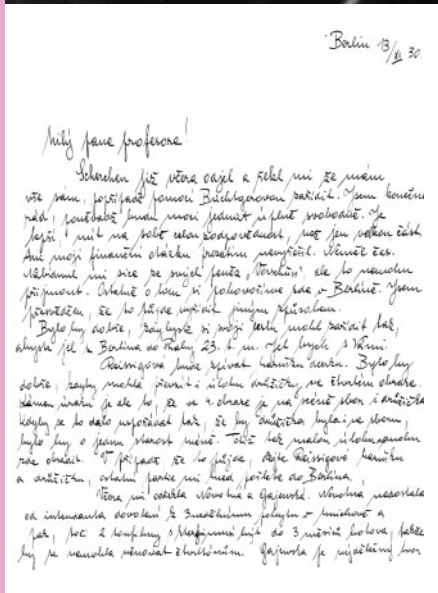 Berlin 13/XI 30.
Milý pane profesore!
Scherchen již včera odjel a řekl mi že mám
vše sám, popřípadě pomocí zařídit. Jsem konečně
rád, poněvadž budu moci jednat úplně svobodně. Je
lepší, mít na sobě celou zodpovědnost, než jen velkou část
Ani moji finanční otázku prozatím nevyřešil. Neměl čas.
Nabídnul mi sice ze svých peněz „Vorschuss“, ale to nemohu
přijmout. Ostatně o tom si pohovoříme zde v Berlíně. Jsem
přesvědčen, že to půjde vyřídit jiným způsobem.
Bylo by dobře, kdybyste si svoji cestu mohl zařídit tak,
abyste jel z Berlina do Prahy 23. t. m. Jel bych s Vámi.
Reissigová bude zpívat dcerku. Bylo by
dobře, kdyby mohla převzít i úlohu družičky, ve čtvrtém obraze.
Kámen úrazu je ale to, že ve 4. obraze je na scéně sbor i družička
Kdyby se to dalo uspořádat tak, že by družička byla i ve sboru,
bylo by o jednu starost méně. Totiž tak malou úlohu nemohu
zde obsadit. V případě že to půjde, dejte Reissigové
a družičku, ostatní partie mi hned pošlete do Berlina.
Včera mi odřekla Novotna a Gajewska. Novotna nedostala
od intendanta dovolení k 3nedělnímu pobytu v Mnichově a
pak, točí 2 tonfilmy s být do 3 měsíců hotova, takže
by se nemohla věnovat čtvrttónům. Gajewska je